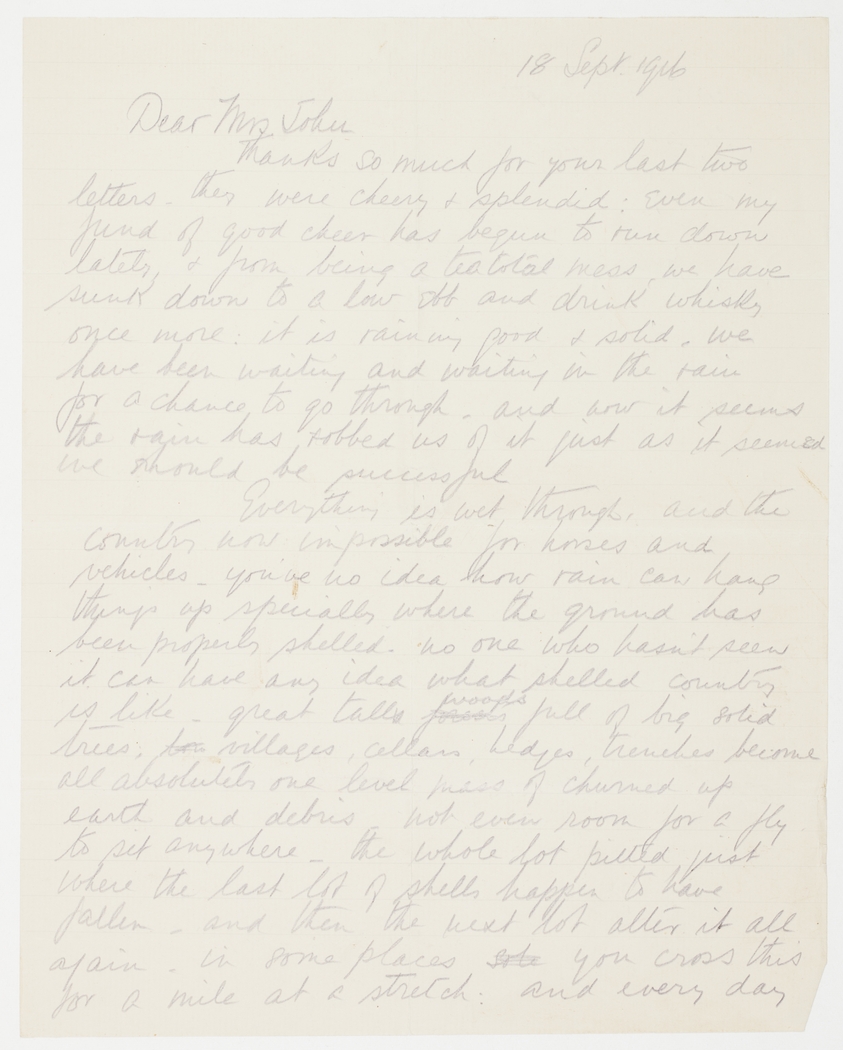 18 Sept. 1916
Dear Mrs John
Thanks so much for your last two
letters - they were cheery & splendid: Even my
fund of good cheer has begun to run down
lately, & from being a teatotal mess, we have
sunk down to a low ebb and drink whisky
once more: it is raining good & solid. we
have been waiting and waiting in the rain
for a chance to go through - and now it seems
the rain has robbed us of it just as it seemed
we should be successful
Everything is wet through, and the
country now impossible for horses and
vehicles - you've no idea how rain can hang
things up specially where the ground has
been properly shelled. no one who hasn't seen
it can have any idea what shelled country
is like - great tall woods full of big solid
trees, villages, cellars, hedges, trenches become
all absolutely one level mass of churned up
earth and debris - not even room for a fly
to sit anywhere - the whole lot pitted just
where the last lot of shells happen to have
fallen - and then the next lot alter it all
again - in some places you cross this
for a mile at a stretch: and every day